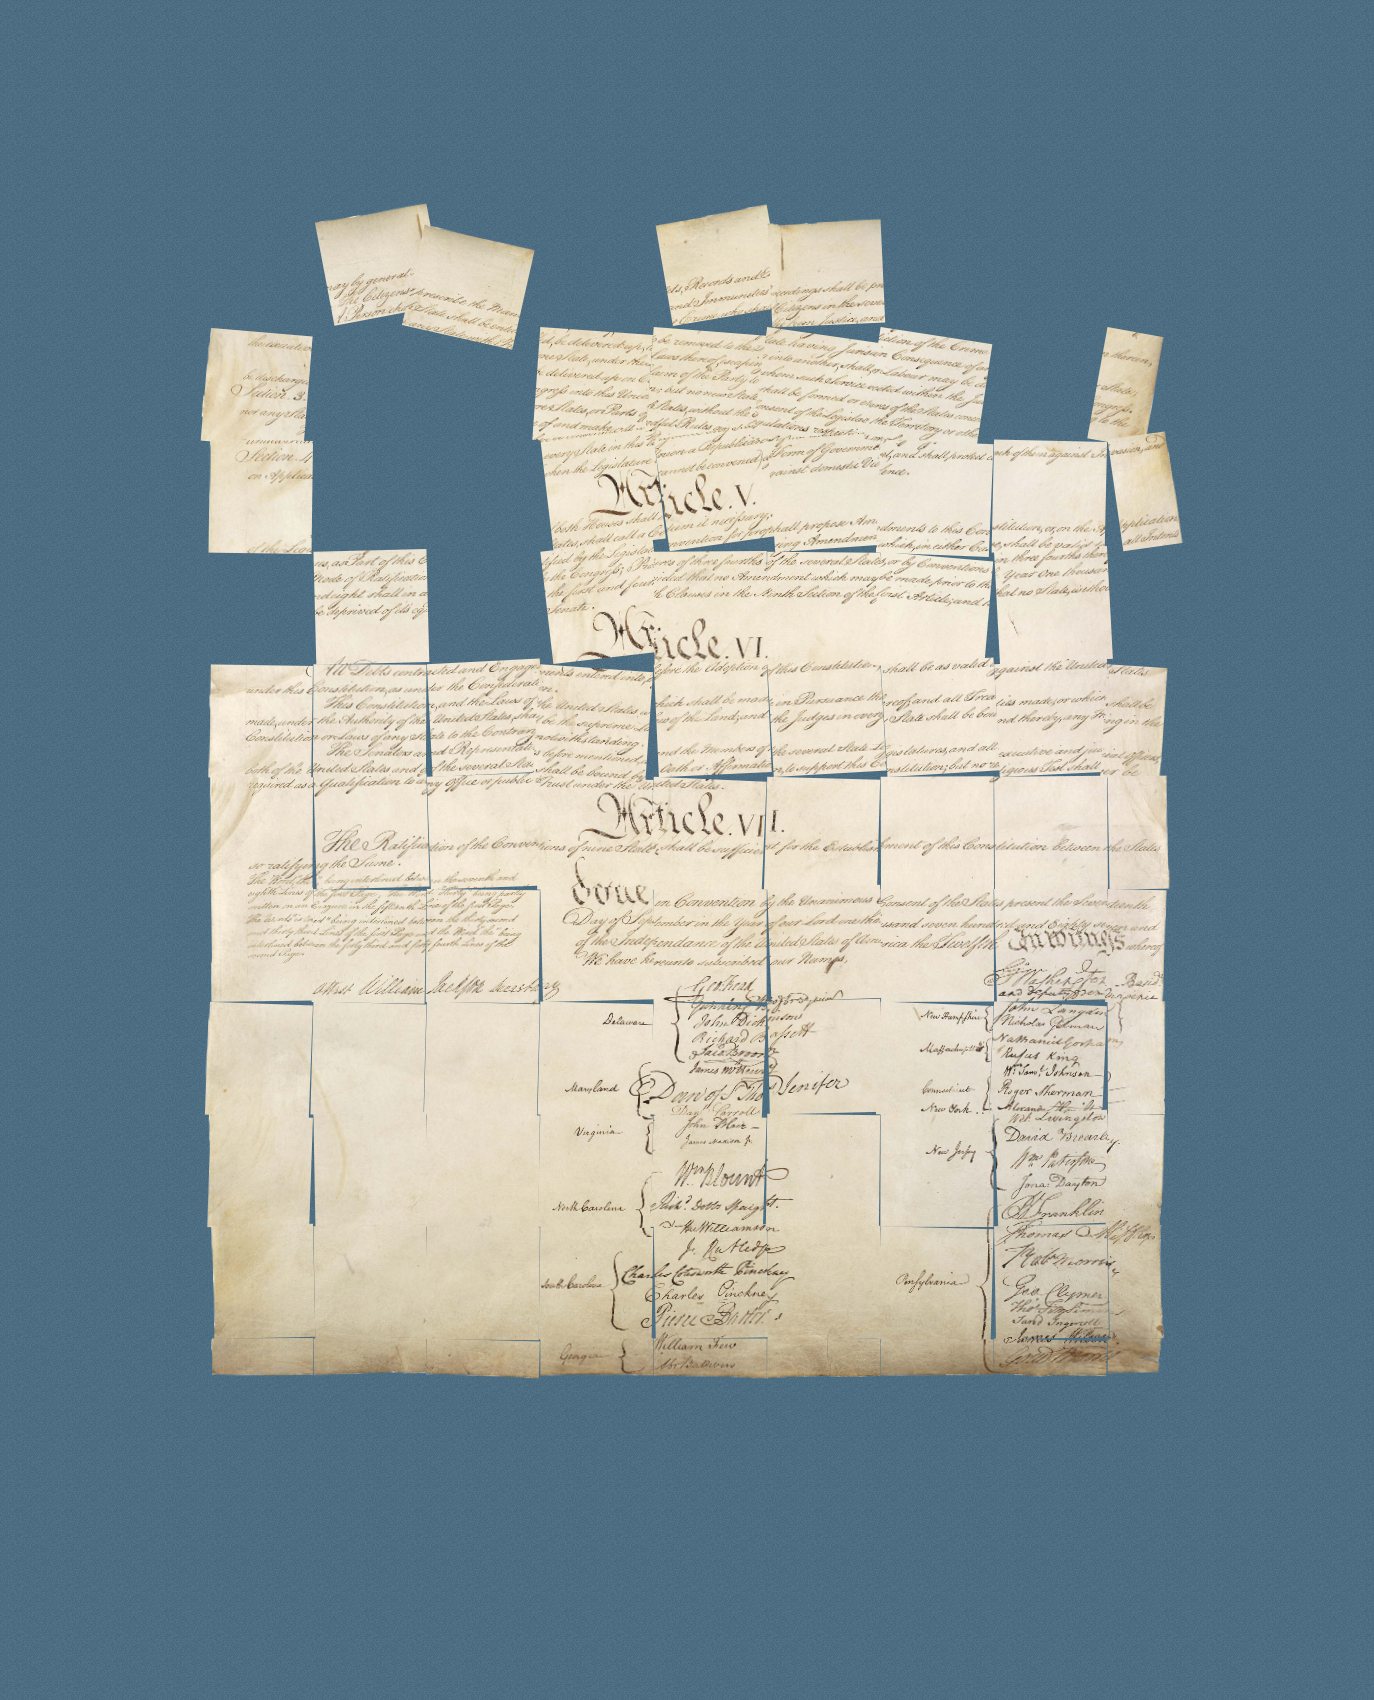 may by general
the Citizens
Person
prescribe the Mann
State shall be entit
any State
ts, Records and
and Immunities
Crime, who shall
ceedings shall be pr
Citizens in the sever
from Justice, and
the executive
be discharge
Section. 3.
not any State
Section. 4
on Applicat
of the Legis
d, be delivered up, to be removed to the State having Jurisdiction of the Crime
one State, under the Laws thereof, escaping into another, shall, in Consequence of any
be delivered up on Claim of the Party to whom such Service
or Labour may be due
gress into this Union; but no new State shall be formed or erected within the Juris
more States, or Parts of States, without the Consent of the Legislat
of the States concern
e of and make all needful Rules and Regulations respecting
the Territory or other
therein
State
ongress.
to the
every State in this Union a Republican Form of Government, and shall protect each of them against Invasion; and
when the Legislature cannot be convened) against domestic Violence.
Article. V.
both Houses shall deem it necessary, shall propose Amendments to this Constitution, or, on the Application
States, shall call a Convention for proposing Amendments, which, in either Case, shall be valid to all Intents
ns, as Part of this C
Mode of Ratification
nd eight shall in a
be deprived of its eq
ified by the Legislatures of three fourths of the several States, or by Conventions in three fourths there
the Congress; Provided that no Amendment which may be made prior to the Year One thousand
the first and fourth Clauses in the Ninth Section of the first Article; and that no State, without
Senate.
Article. VI.
All Debts contracted and Engagements entered into, before the Adoption of this Constitution, shall be as valid against the United States
under this Constitution, as under the Confederation.
This Constitution, and the Laws of the United States which shall be made in Pursuance thereof; and all Treaties made, or which shall be
made, under the Authority of the United States, shall be the supreme Law of the Land; and the Judges in every State shall be bound thereby, any Thing in the
Constitution or Laws of any State to the Contrary notwithstanding.
The Senators and Representatives before mentioned, and the Members of the several State Legislatures, and all executive and judicial Officers,
both of the United States and of the several States, shall be bound by Oath or Affirmation, to support this Constitution; but no religious Test shall ever be
required as a Qualification to any Office or public Trust under the United States.
Article. VII.
The Ratification of the Conventions of nine States, shall be sufficient for the Establishment of this Constitution between the States
so ratifying the Same.
The Word, "the," being interlined between the seventh and
eighth Lines of the first Page, The Word "Thirty" being partly
written on an Erazure in the fifteenth Line of the first Page,
The Words "is tried" being interlined between the thirty second
and thirty third Lines of the first Page and the Word "the" being
interlined between the forty third and forty fourth Lines of the
second Page.
Attest William Jackson Secretary
done in Convention by the Unanimous Consent of the States present the Seventeenth
Day of September in the Year of our Lord one thousand seven hundred and Eighty seven and
of the Independance of the United States of America the Twelfth In witness whereof
We have hereunto subscribed our Names,
Go: Washington Presidt
and deputy from Virginia
Delaware
Geo: Read
Gunning Bedford jun
John Dickinson
Richard Bassett
Jaco: Broom
Maryland
James McHenry
Dan of St Thos Jenifer
Danl Carroll
Virginia
John Blair
James Madison Jr.
North Carolina
Wm Blount
Richd Dobbs Spaight.
Hu Williamson
South Carolina
J. Rutledge
Charles Cotesworth Pinckney
Charles Pinckney
Pierce Butler.
Georgia
William Few
Abr Baldwin
New Hampshire
John Langdon
Nicholas Gilman
Massachusetts
Nathaniel Gorham
Rufus King
Connecticut
Wm Saml Johnson
Roger Sherman
New York
Alexander Hamilton
New Jersey
Wil: Livingston
David Brearley.
Wm Paterson
Jona: Dayton
Pensylvania
B Franklin
Thomas Mifflin
Robt Morris
Geo. Clymer
Thos FitzSimons
Jared Ingersoll
James Wilson.
Gouv Morris